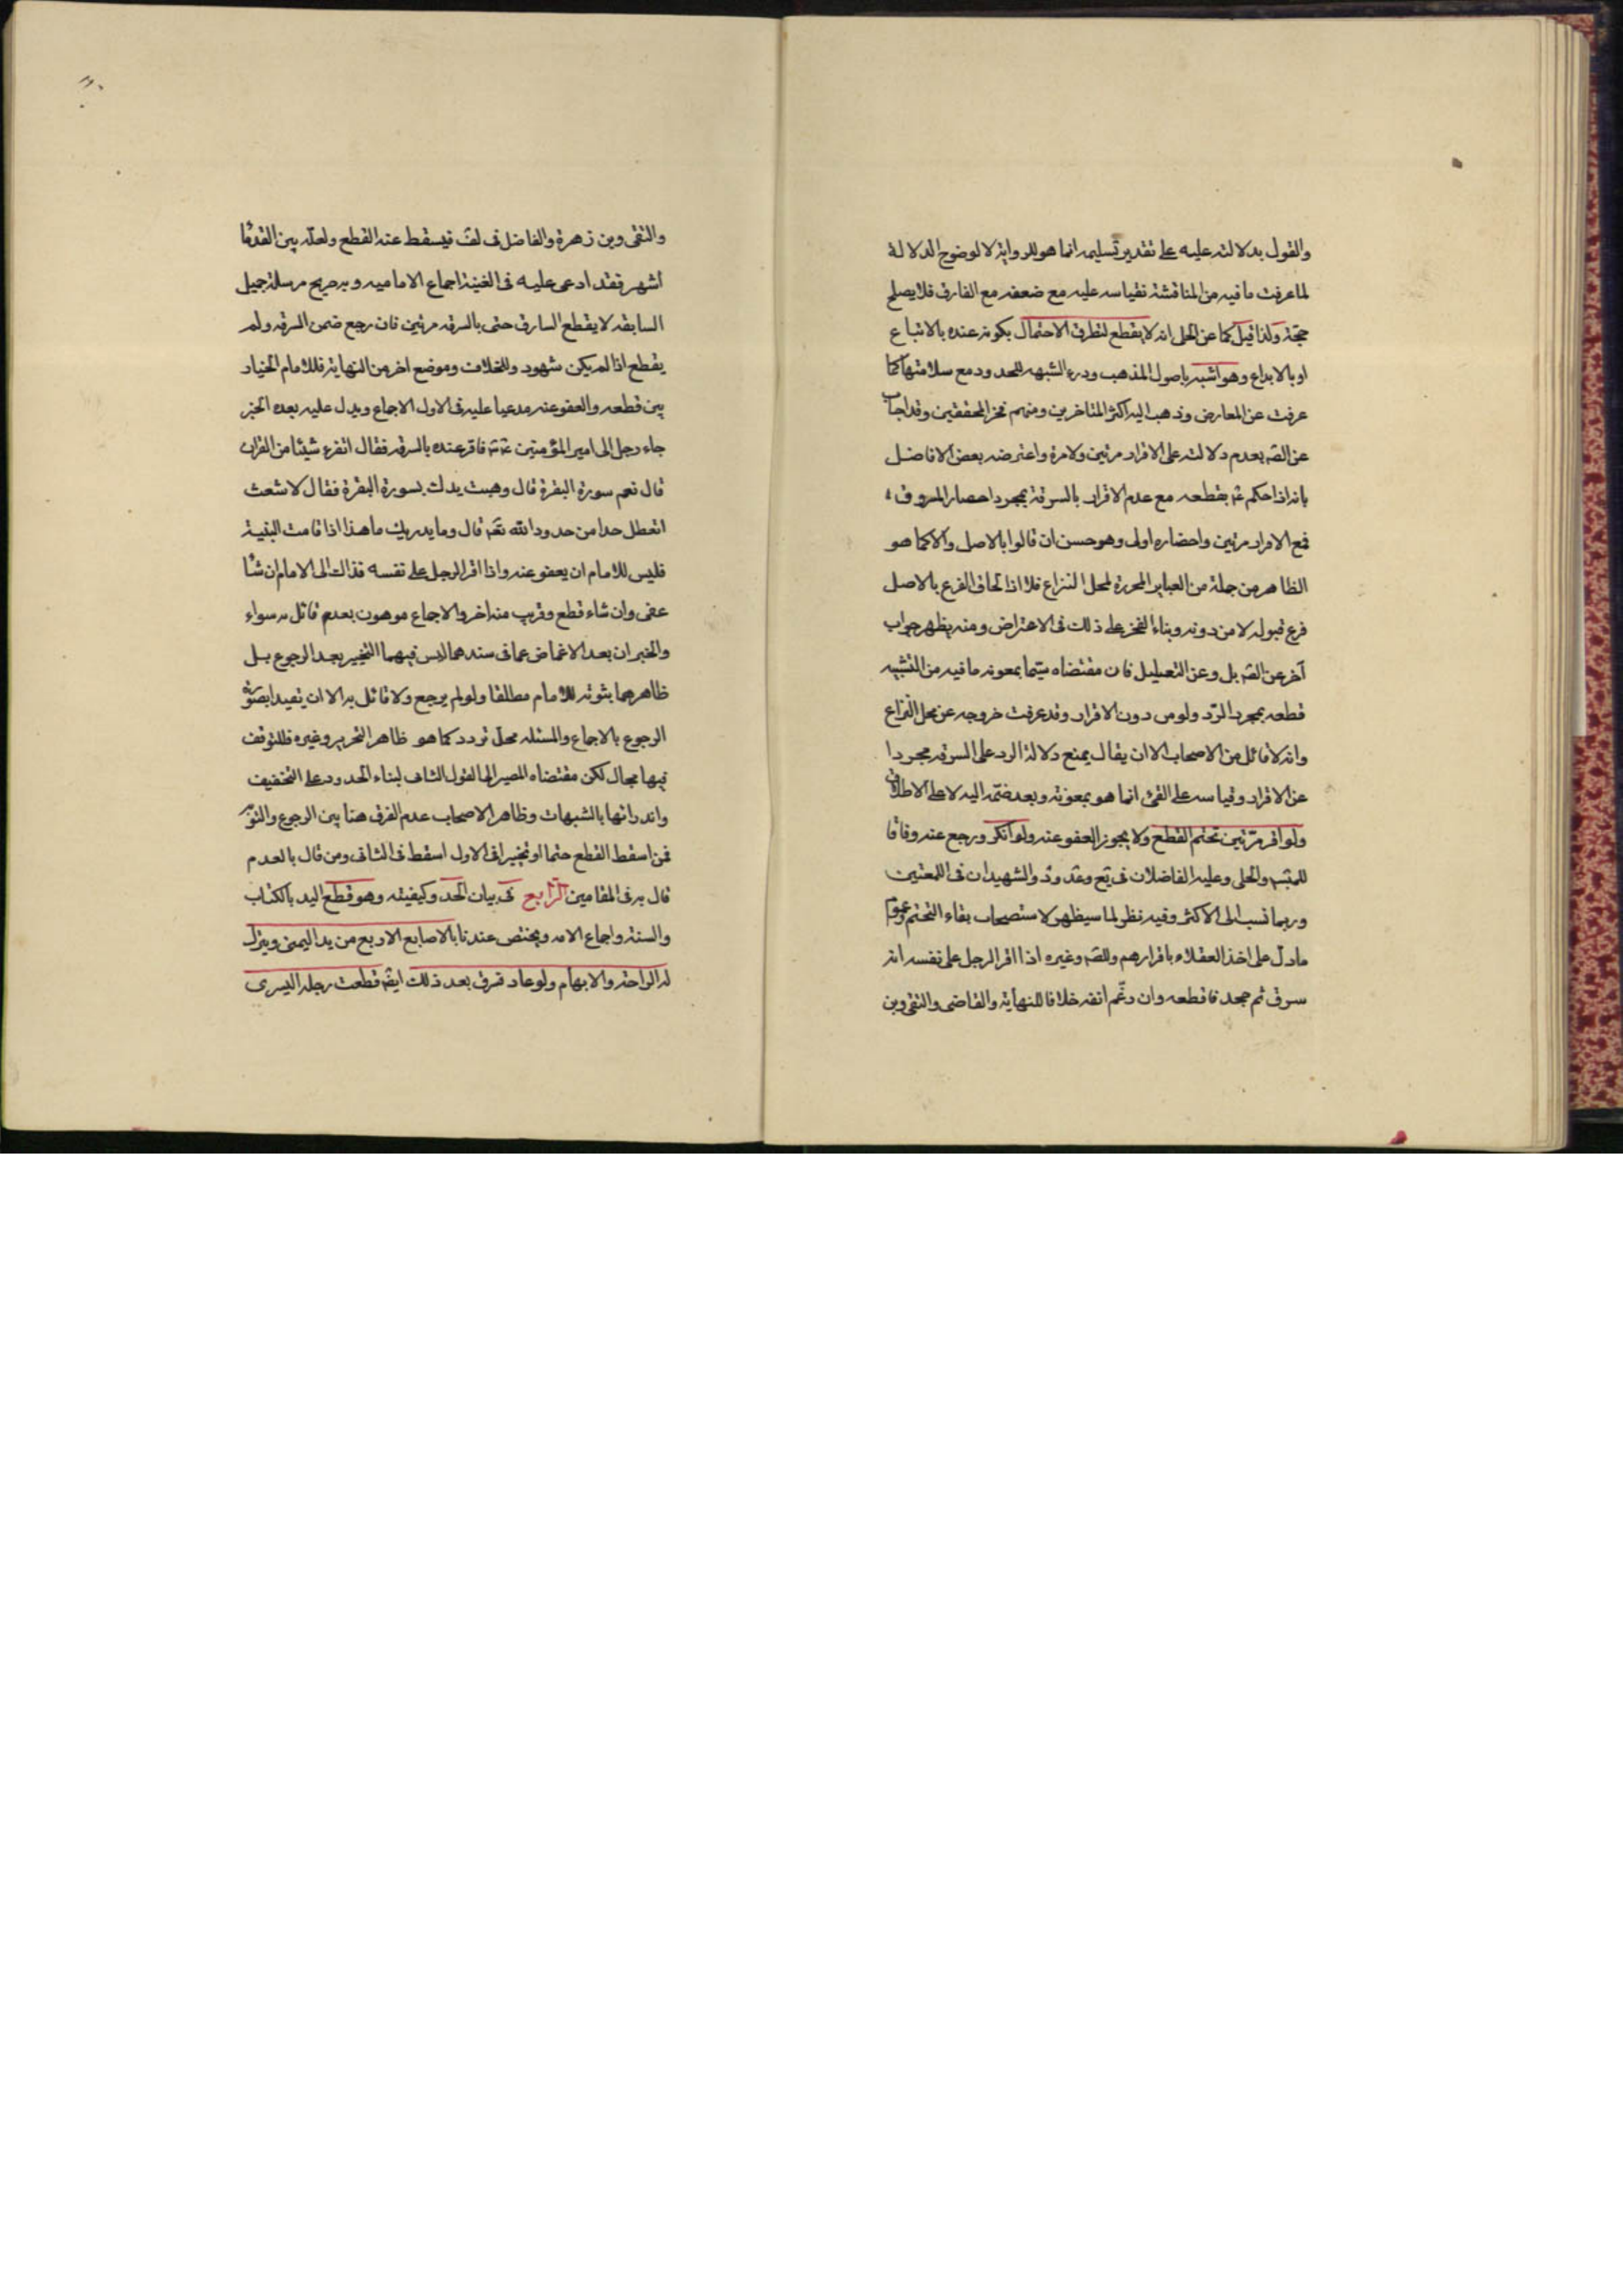 والقول بدلالته عليه على تقدير تسليمه انما هو للرواية لا لوضوح الدلالة
لما عرفت ما فيه من المناقشة نقياسه عليه مع ضعفه مع الفارق فلا يصلح
حجّة ولذا قيل كما عن الحلى انه لا يقطع لتطرق الاحتمال بكونه عنده بالابتياع
او بالايداع وهو اشبه باصول المذهب ودرء الشبهه للحدود مع سلامتها كما
عرفت عن المعارض وذهب اليه اكثر المتاخرين ومنهم فخر المحققين وقد اجاب
عن النصّ بعدم دلالته على الاقرار مرتين ولا مرة واعترضه بعض الافاضل
بانه اذا حكم عم بقطعه مع عدم الاقرار بالسرقة بمجرد احضار المسروق
فمع الاقرار مرتين واحضاره اولى وهو حسن ان قالوا بالاصل والا كما هو
الظاهر من جملة من العباير المحررة لمحل النزاع فلا اذ الحاق الفرع بالاصل
فرع قبوله لا من دونه وبناء الفخر على ذلك فى الاعتراض ومنه يظهر جواب
آخر عن النصّ بل وعن التعليل فان مقتضاه سيّما بمعونه ما فيه من التشبيه
قطعه بمجرد الردّ ولو من دون الاقرار وقد عرفت خروجه عن محل النزاع
وانه لا قائل من الاصحاب الا ان يقال بمنع دلالة الرد على السرقه مجردا
عن الاقرار وقياسه على القئ انما هو بمعونته وبعد ضمّه اليه لا على الاطلاق
ولو اقر مرّتين تحتم القطع ولا يجوز العفو عنه ولو انكر ورجع عنه وفاقا
للمبسو والحلى وعليه الفاضلان فى يع وعد ود والشهيدان فى اللمعتين
وربما نسب الى الاكثر وفيه نظر لما سيظهر لاستصحاب بقاء التحتم وعموم
ما دلّ على اخذ العقلاء باقرارهم وللصّ وغيره اذا اقر الرجل على نفسه انه
سرق ثم جحد فاقطعه وان رغم انفه خلافا للنهاية والقاضى والتقى وبن
والتقى وبن زهرة والفاضل فى لف فيسقط عنه القطع ولعلّه بين القدماء
اشهر فقد ادعى عليه فى الغنية اجماع الاماميه وبه صريح مرسلة جميل
السابقه لا يقطع السارق حتى بالسرقه مرتين فان رجع ضمن السرقه ولم
يقطع اذا لم يكن شهود وللخلاف وموضع اخر من النهاية فللامام الخيار
بين قطعه والعفو عنه مدعيا عليه فى الاول الاجماع ويدل عليه بعده الخبر
جاء رجل الى امير المؤمنين فاقر عنده بالسرقه فقال اتقرء شيئا من القران
قال نعم سورة البقرة قال وهبت يدك بسورة البقرة فقال الاشعث
اتعطل حدا من حدود الله تعم قال وما يدريك ما هذا اذا قامت البنية
فليس للامام ان يعفو عنه واذا اقر الرجل على نفسه فذاك الى الامام ان شاء
عفى وان شاء قطع وقريب منه اخر والاجماع موهون بعدم قائل به سواه
والخبران بعد الاغماض عما فى سندهما ليس فيهما التخيير بعد الرجوع بل
ظاهرهما بثوته للامام مطلقا ولو لم يرجع ولا قائل به الا ان تقيدا بصورة
الرجوع بالاجماع والمسئله محلّ تردد كما هو ظاهر التحرير وغيره فللتوقف
فيها مجال لكن مقتضاه المصير الى القول الثانى لبناء الحدود على التخفيف
واندرائها بالشبهات وظاهر الاصحاب عدم الفرق هنا بين الرجوع والتوبه
فمن اسقط القطع حتما او تخييرا فى الاول اسقط فى الثانى ومن قال بالعدم
قال به فى المقامين الرّابع فى بيان الحد وكيفيته وهو قطع اليد بالكتاب
والسنة واجماع الامه ويختص عندنا بالاصابع الاربع من يد اليمنى ويترك
له الراحة والابهام ولو عاد فسرق بعد ذلك ايضّ قطعت رجله اليسرى